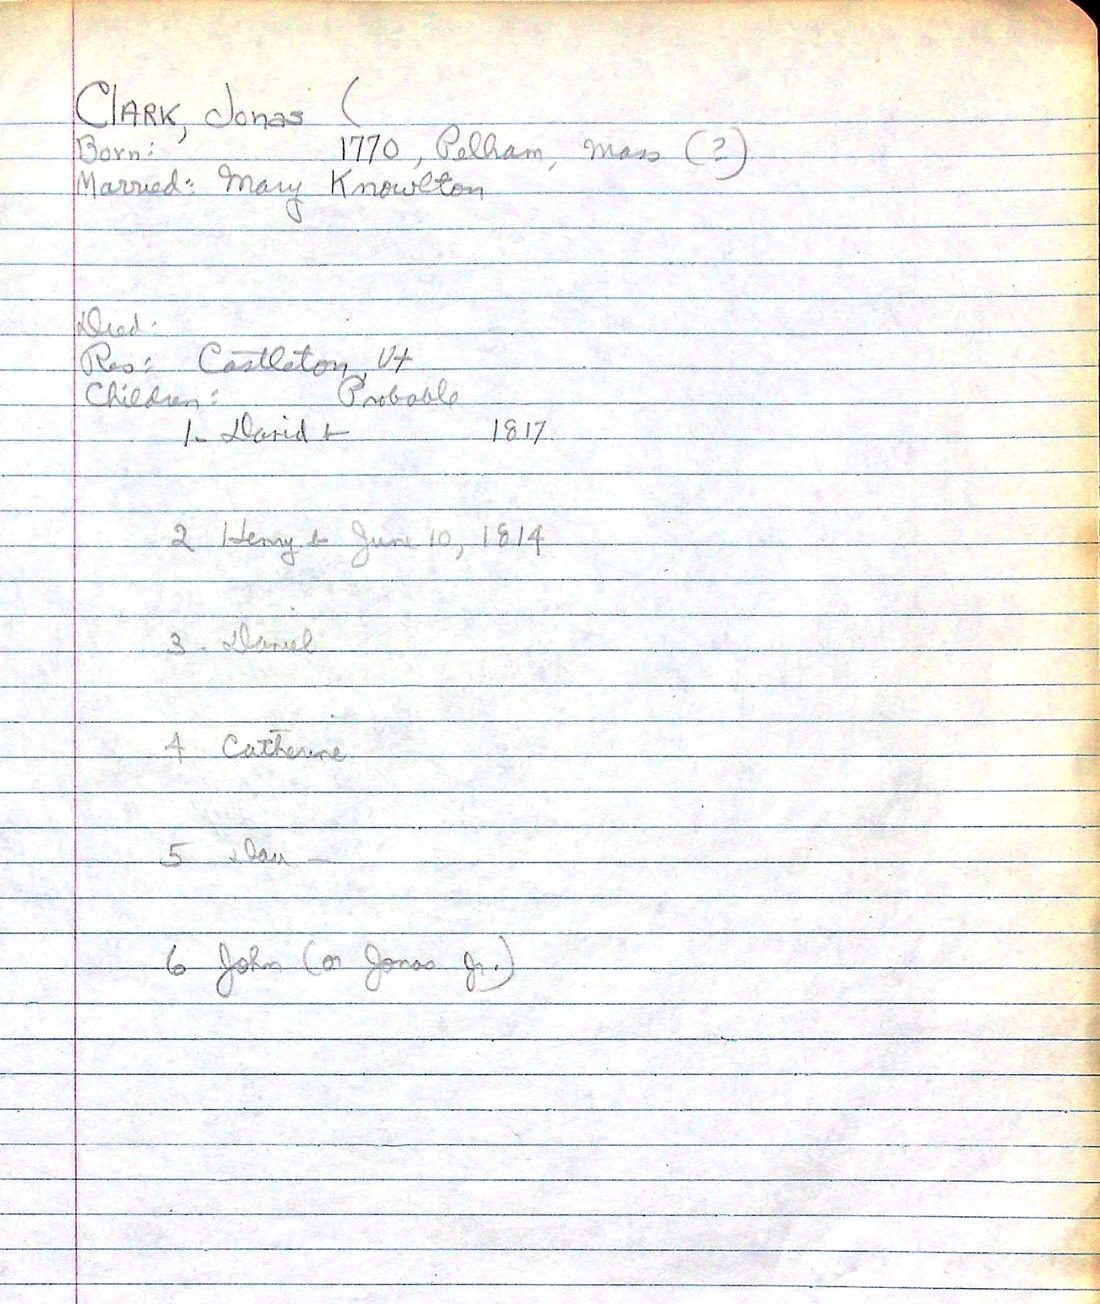 CLARK, Jonas (
Born: 1770, Pelham, Mass (?)
Married: Mary Knowlton
Died:
Res: Castleton, Vt
Children: Probable
1- David b 1817
2 Henry b June 10, 1814
3. Daniel
4 Catherine
5 Dan -
6 John (or Jonas Jr.)